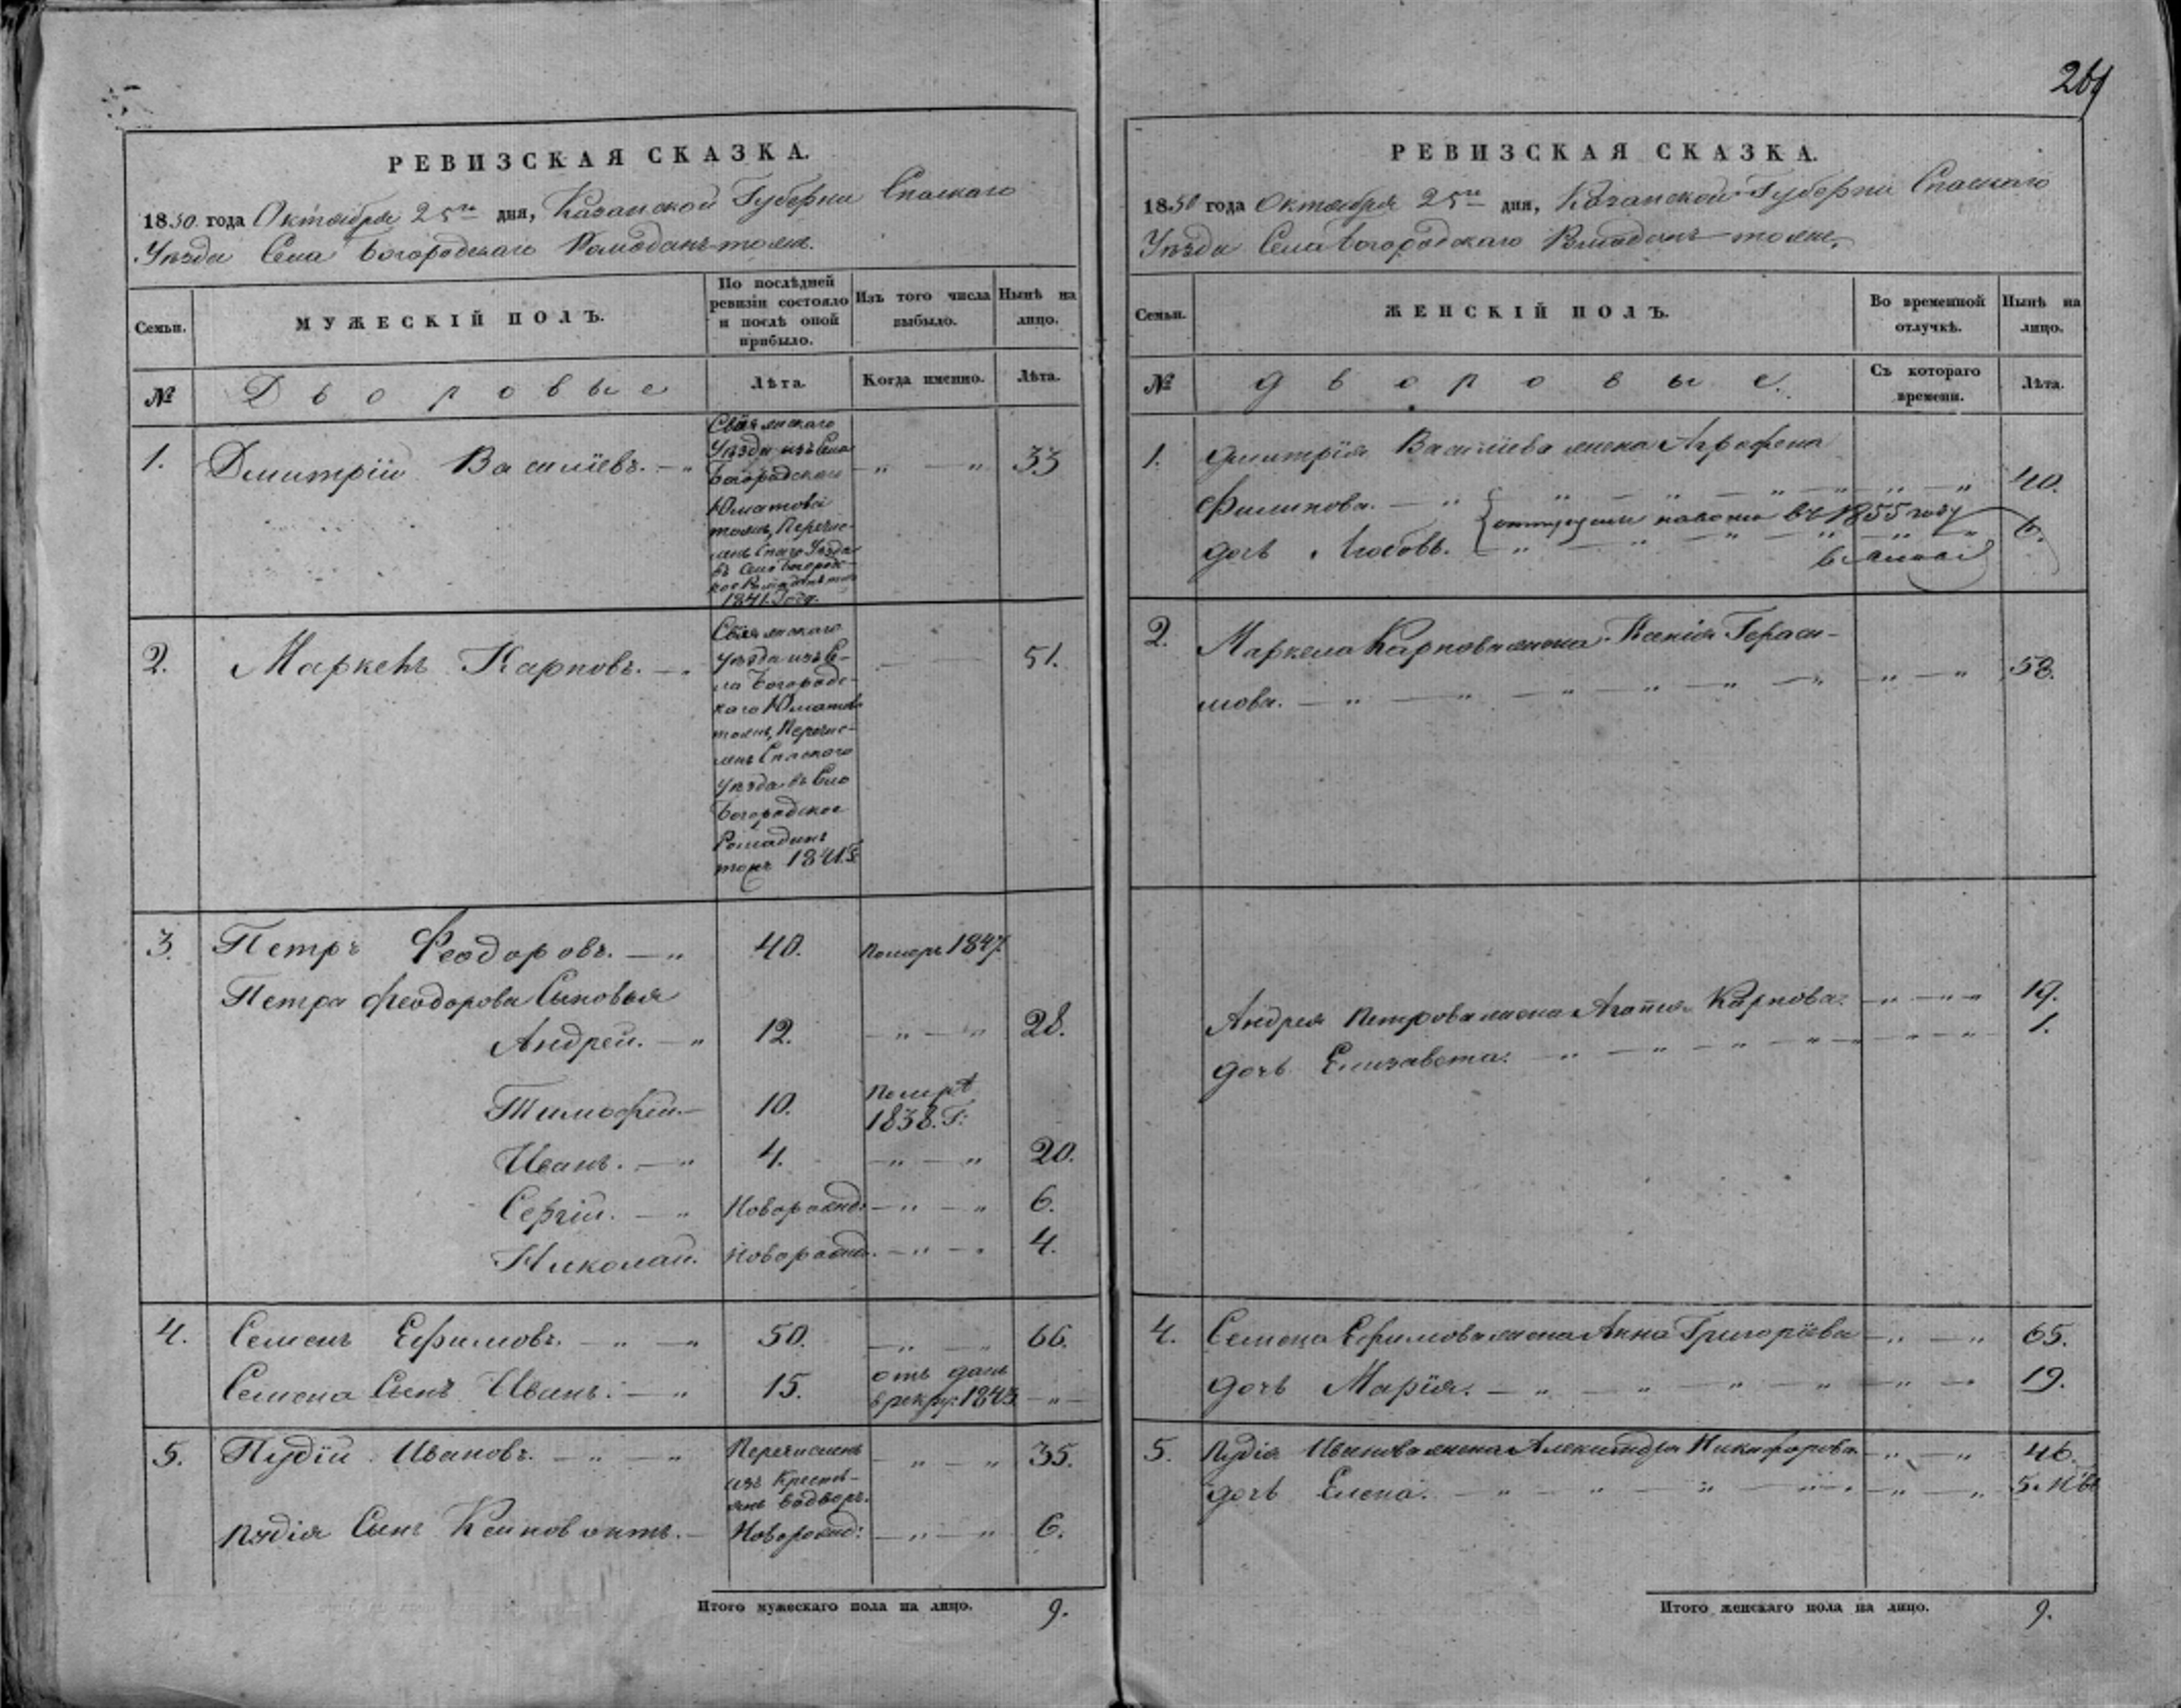 269
РЕВИЗСКАЯ СКАЗКА.
1850 года Октября 25го дня, Казанской Губерни Спаскаго
Уезда Села Богородскаго Ромоданъ тожъ.
Семьи.
МУЖЕСКІЙ ПОЛЪ.
По послѣдней ревизіи состояло и послѣ оной прибыло.
Изъ того числа выбыло.
Нынѣ на лицо.
№
Дворовые
Лѣта.
Когда именно.
Лѣта.
1. Дмитрій Василіевъ. 33
Свіяжскаго
Уѣзда изъ Села
Богородскаго
Юматова
тожъ, Перечис-
ленъ Спаскаго Уѣзда
въ Село Богородс-
кое Ромаданъ тожъ
1841. Года.
2. Маркелъ Карповъ. 51.
Свіяжскаго
Уѣзда изъ Се-
ла Богородс-
каго Юматово
тожъ, Перечис-
ленъ Спаскаго
Уѣзда въ Село
Богородское
Ромаданъ
тожъ 1841. Г.
3. Петръ Феодоровъ. 40. Померъ 1847.
Петра Феодорова Сыновья
Андрей. 12. 28.
Тимофей. 10. Померъ 1838. Г:
Иванъ. 4. 20.
Сергій. Новорожд: 6.
Николай. Новорожд. 4.
4. Семенъ Ефимовъ. 50. 66.
Семена Сынъ Иванъ. 15. отъ данъ в рекру: 1843
5. Пудій Ивановъ. Перечисленъ изъ Кресть- янъ водворъ. 35.
Пудія Сынъ Новорожд: 6.
Итого мужескаго пола на лицо. 9.
РЕВИЗСКАЯ СКАЗКА.
1850 года Октября 25го дня, Казанской Губерни Спаскаго
Уѣзда Села Богородскаго Ромаданъ тожъ.
Семьи.
ЖЕНСКІЙ ПОЛЪ.
Во временной отлучкѣ.
Нынѣ на лицо.
№
дворовые.
Съ котораго времени.
Лѣта.
1. Дмитрія Василіева жена Аграфена
Филипова. 40.
отпущены на волю въ 1855 году
дочь Любовь. 6.
2. Маркела Карпова жена Ксенія Гераси-
мова. 58.
Андрея Петрова жена Агапия Карпова. 19.
дочь Елизавета. 1.
4. Семена Ефимова жена Анна Григоріева 65.
дочь Марія. 19.
5. Пудія Иванова жена Александра Никифорова. 46.
дочь Елена. 5. М
Итого женскаго пола на лицо. 9.